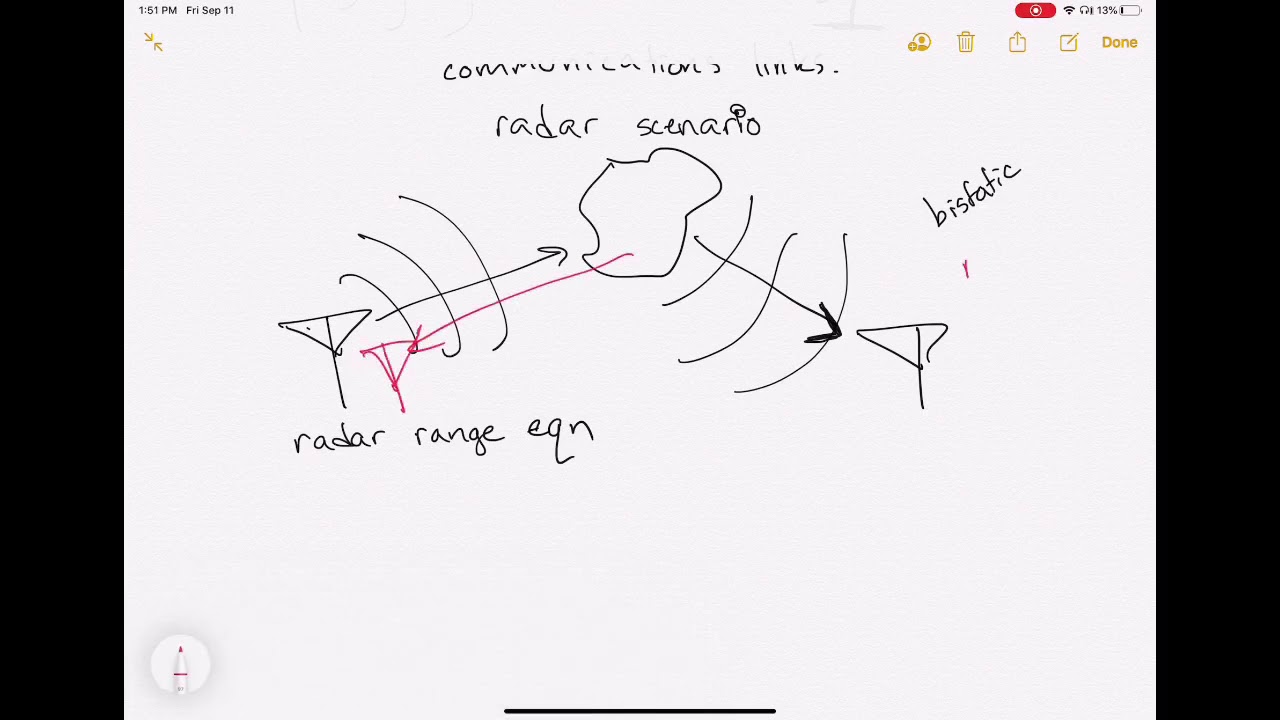 1:51 PM Fri Sep 11
13%
Done
communications links.
radar scenario
bistatic
radar range eqn